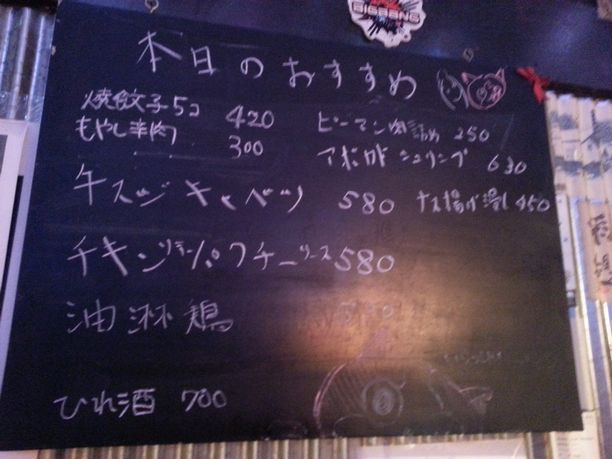 BIGBANG
本日のおすすめ
焼餃子5コ 420
もやし辛肉 300
牛スジキャベツ 580
チキン 580
油淋鶏
ひれ酒 700
ピーマン肉詰め 250
アボカドシュリンプ 630
ナス揚げ浸し 450